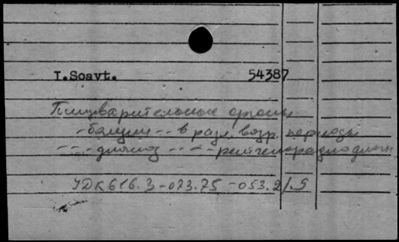 I.Soavt. 54387
Пищеварительные органы
-болезни -- в разл. возр. периоды
- - -диагноз - - - -рентгенорадиодиагн
УДК 616.3-073.75-053.2/.9